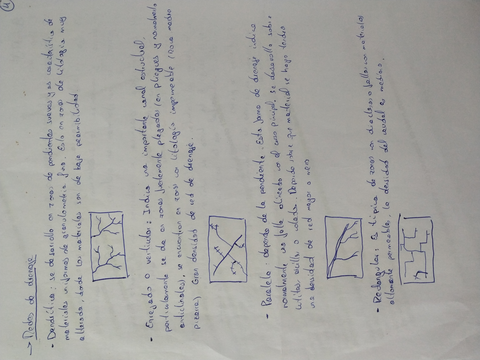 → Modos de drenaje
- Dendrítico: se desarrolla en zonas de pendientes suaves y es característico de
materiales uniformes de granulometría fina. Está en zonas de litología muy
alterada, donde los materiales son de baja permeabilidad.
- Enrejado o reticular: Indica una importante control estructural.
particularmente se da en zonas fuertemente plegadas (en pliegues
anticlinales), se encuentran en zonas con litología impermeable
Gran densidad de red de drenaje.
- Paralelo: depende de la pendiente. Esta forma de drenaje indica
normalmente una falla alineada con el cauce principal. Se desarrolla sobre
Depende de que material se haga tendrá
una densidad de red mayor o menor
- Rectangular: Es típica de zonas con diaclasas o fallas con materiales
altamente permeable, la densidad del caudal es media.